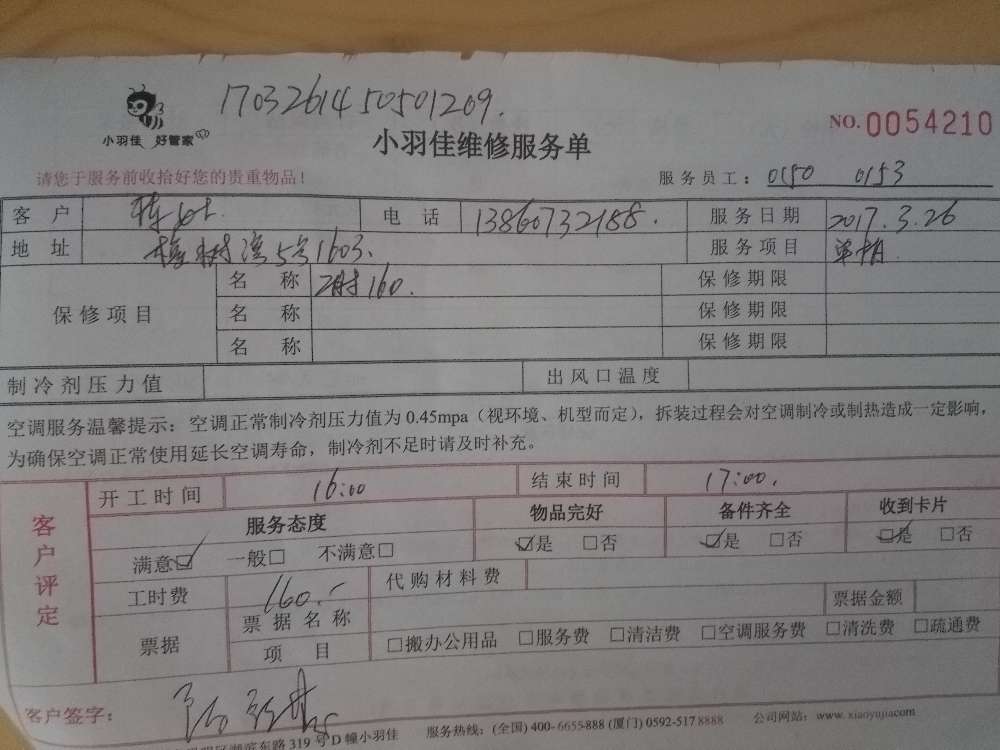 1703261450501209.
小羽佳 好管家
小羽佳维修服务单
NO.0054210
请您于服务前收拾好您的贵重物品！
服务员工：0150 0153
客户 电话 13860732188. 服务日期 2017.3.26
地址 5号1603. 服务项目
保修项目 名称 160. 保修期限
名称 保修期限
名称 保修期限
制冷剂压力值 出风口温度
空调服务温馨提示：空调正常制冷剂压力值为0.45mpa（视环境、机型而定），拆装过程会对空调制冷或制热造成一定影响，
为确保空调正常使用延长空调寿命，制冷剂不足时请及时补充。
客户评定
开工时间 16:00 结束时间 17:00.
服务态度 物品完好 备件齐全 收到卡片
满意☑ 一般□ 不满意□ ☑是 □否 ☑是 □否 ☑是 □否
工时费 160.- 代购材料费
票据 票据名称 票据金额
项目 □搬办公用品 □服务费 □清洁费 □空调服务费 □清洗费 □疏通费
客户签字：
湖滨东路319号D幢小羽佳 服务热线：(全国) 400-6655-888 (厦门) 0592-517 8888 公司网站：www.xiaoyujiacom